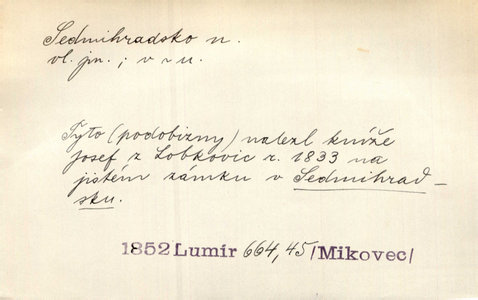 Sedmihradsko n.
vl. jm.; v ~ u.
Tyto (podobizny) nalezl kníže
Josef z Lobkovic r. 1833 na
jistém zámku v Sedmihrad-
sku.
1852 Lumír 664,45/Mikovec/